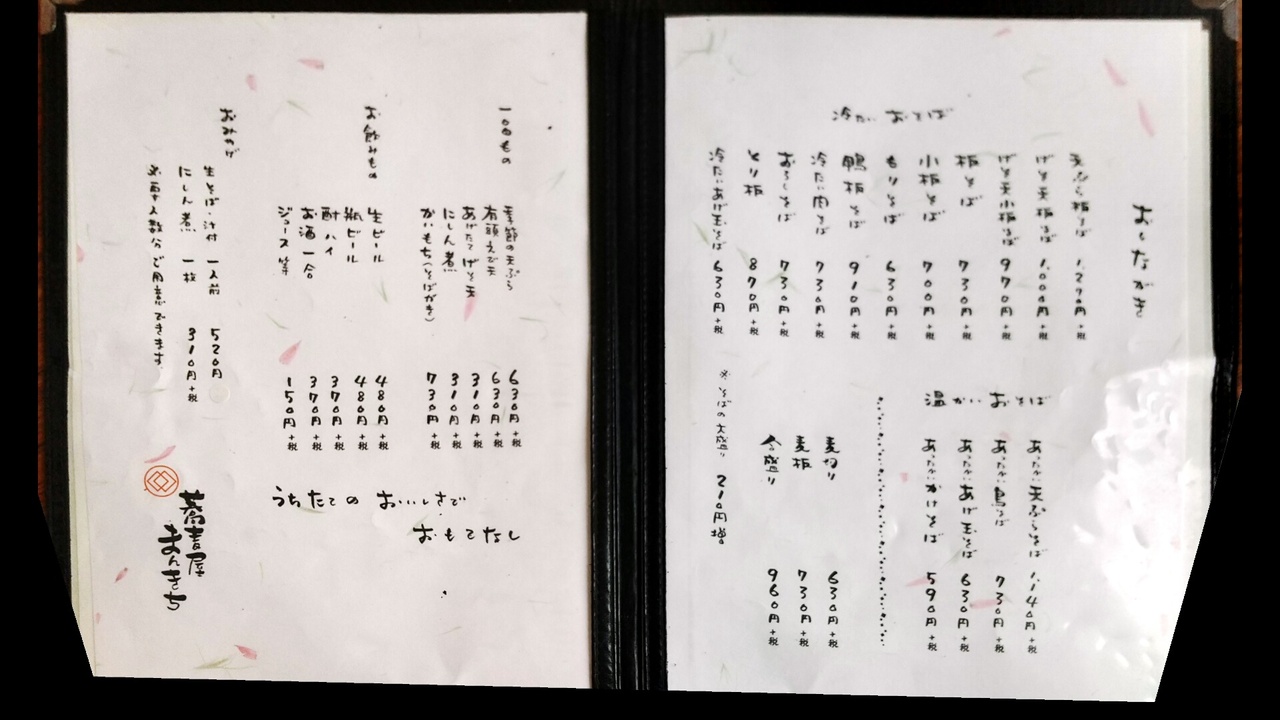 おしながき
冷たい おそば
天ぷら板そば 1,270円+税
げそ天板そば 1,000円+税
げそ天小板そば 970円+税
板そば 730円+税
小板そば 700円+税
もりそば 630円+税
鴨板そば 910円+税
冷たい肉そば 730円+税
おろしそば 730円+税
とり板 870円+税
冷たいあげ玉そば 630円+税
温かい おそば
あったかい天ぷらそば 1,140円+税
あったかい鳥そば 730円+税
あったかいあげ玉そば 630円+税
あったかいかけそば 590円+税
麦切り 630円+税
麦板 730円+税
合盛り 960円+税
※そばの大盛り 210円増
一品もの
季節の天ぷら 630円+税
有頭えび天 630円+税
あげたてげそ天 310円+税
にしん煮 310円+税
かいもち(そばがき) 730円+税
お飲みもの
生ビール 480円+税
瓶ビール 480円+税
酎ハイ 370円+税
お酒 一合 370円+税
ジュース等 150円+税
おみやげ
生そば・汁付 一人前 520円
にしん煮 一枚 310円+税
人数分ご用意できます。
うちたての おいしさで
おもてなし
蕎麦屋
まんきち